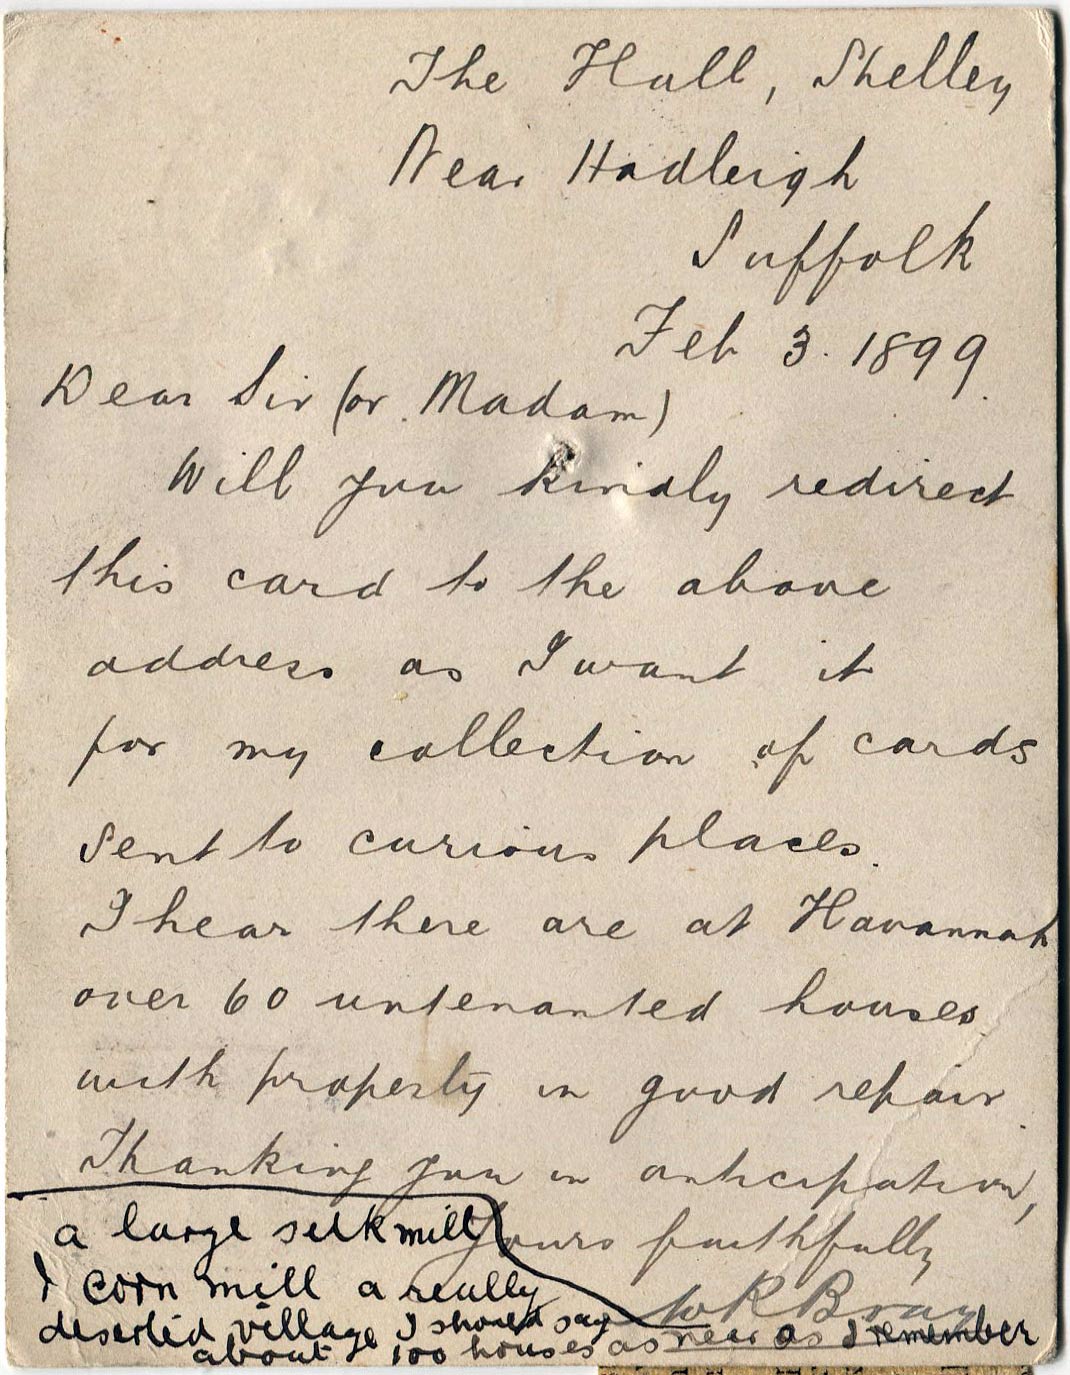 The Hall, Shelley
Near Hadleigh
Suffolk
Feb 3. 1899.
Dear Sir (or Madam)
Will you kindly redirect
this card to the above
address as I want it
for my collection of cards
sent to curious places.
I hear there are at Havannah
over 60 untenanted houses
with property in good repair.
Thanking you in anticipation,
Yours faithfully
W R Bray
a large silk mill
& corn mill a really
deserted village I should say
about 100 houses as near as I remember